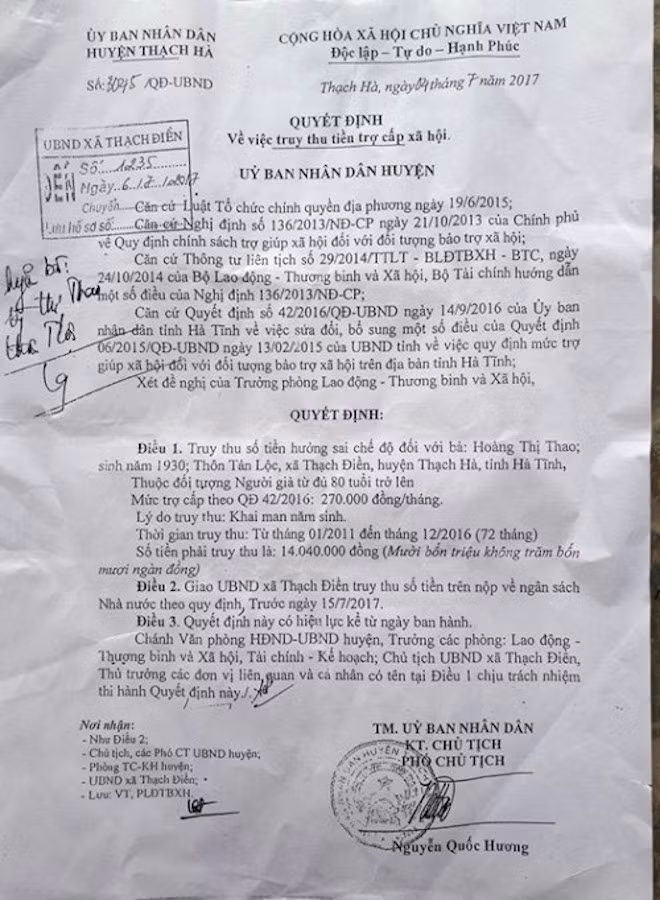 ỦY BAN NHÂN DÂN
HUYỆN THẠCH HÀ
Số: 3045 /QĐ-UBND
CỘNG HÒA XÃ HỘI CHỦ NGHĨA VIỆT NAM
Độc lập – Tự do – Hạnh Phúc
Thạch Hà, ngày 04 tháng 7 năm 2017
QUYẾT ĐỊNH
Về việc truy thu tiền trợ cấp xã hội.
UBND XÃ THẠCH ĐIỀN
ĐẾN
Số 1235
Ngày 6 / 7 / 2017
Chuyển
Lưu hồ sơ số
UỶ BAN NHÂN DÂN HUYỆN
Căn cứ Luật Tổ chức chính quyền địa phương ngày 19/6/2015;
Căn cứ Nghị định số 136/2013/NĐ-CP ngày 21/10/2013 của Chính phủ
về Quy định chính sách trợ giúp xã hội đối với đối tượng bảo trợ xã hội;
Căn cứ Thông tư liên tịch số 29/2014/TTLT - BLĐTBXH - BTC, ngày
24/10/2014 của Bộ Lao động - Thương binh và Xã hội, Bộ Tài chính hướng dẫn
một số điều của Nghị định 136/2013/NĐ-CP;
Căn cứ Quyết định số 42/2016/QĐ-UBND ngày 14/9/2016 của Ủy ban
nhân dân tỉnh Hà Tĩnh về việc sửa đổi, bổ sung một số điều của Quyết định
06/2015/QĐ-UBND ngày 13/02/2015 của UBND tỉnh về việc quy định mức trợ
giúp xã hội đối với đối tượng bảo trợ xã hội trên địa bàn tỉnh Hà Tĩnh;
Xét đề nghị của Trưởng phòng Lao động - Thương binh và Xã hội,
QUYẾT ĐỊNH:
Điều 1. Truy thu số tiền hưởng sai chế độ đối với bà: Hoàng Thị Thao;
sinh năm 1930; Thôn Tân Lộc, xã Thạch Điền, huyện Thạch Hà, tỉnh Hà Tĩnh,
Thuộc đối tượng Người già từ đủ 80 tuổi trở lên
Mức trợ cấp theo QĐ 42/2016: 270.000 đồng/tháng.
Lý do truy thu: Khai man năm sinh.
Thời gian truy thu: Từ tháng 01/2011 đến tháng 12/2016 (72 tháng)
Số tiền phải truy thu là: 14.040.000 đồng (Mười bốn triệu không trăm bốn
mươi ngàn đồng)
Điều 2. Giao UBND xã Thạch Điền truy thu số tiền trên nộp về ngân sách
Nhà nước theo quy định, Trước ngày 15/7/2017.
Điều 3. Quyết định này có hiệu lực kể từ ngày ban hành.
Chánh Văn phòng HĐND-UBND huyện, Trưởng các phòng: Lao động -
Thượng binh và Xã hội, Tài chính - Kế hoạch; Chủ tịch UBND xã Thạch Điền,
Thủ trưởng các đơn vị liên quan và cá nhân có tên tại Điều 1 chịu trách nhiệm
thi hành Quyết định này./.
Nơi nhận:
- Như Điều 2;
- Chủ tịch, các Phó CT UBND huyện;
- Phòng TC-KH huyện;
- UBND xã Thạch Điền;
- Lưu: VT, PLĐTBXH.
TM. UỶ BAN NHÂN DÂN
KT. CHỦ TỊCH
PHÓ CHỦ TỊCH
Nguyễn Quốc Hương